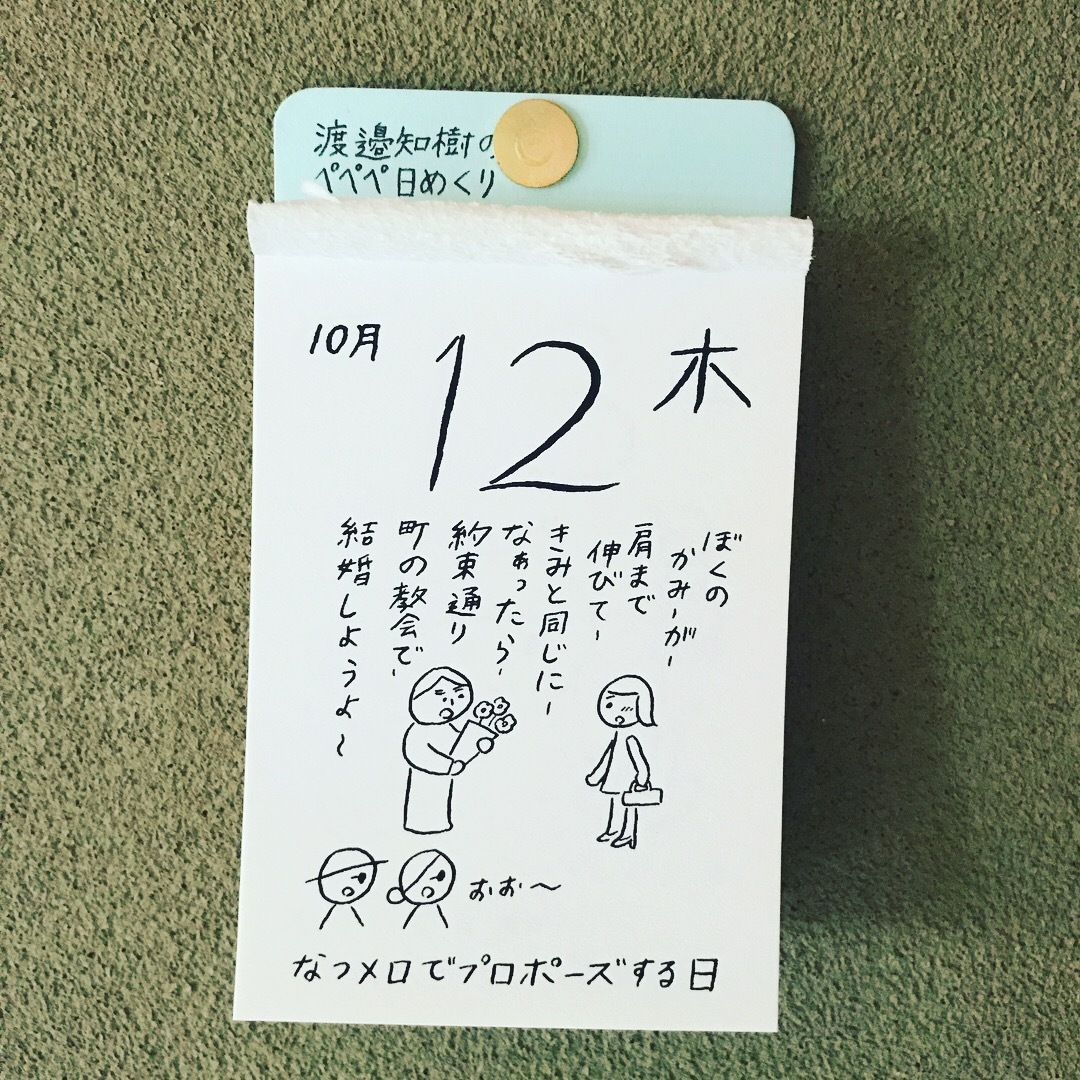 渡邉知樹の
ペペペ日めくり
10月
12
木
ぼくの
かみーがー
肩まで
伸びてー
きみと同じにー
なぁったらー
約束通り
町の教会でー
結婚しようよ〜
おお〜
なつメロでプロポーズする日